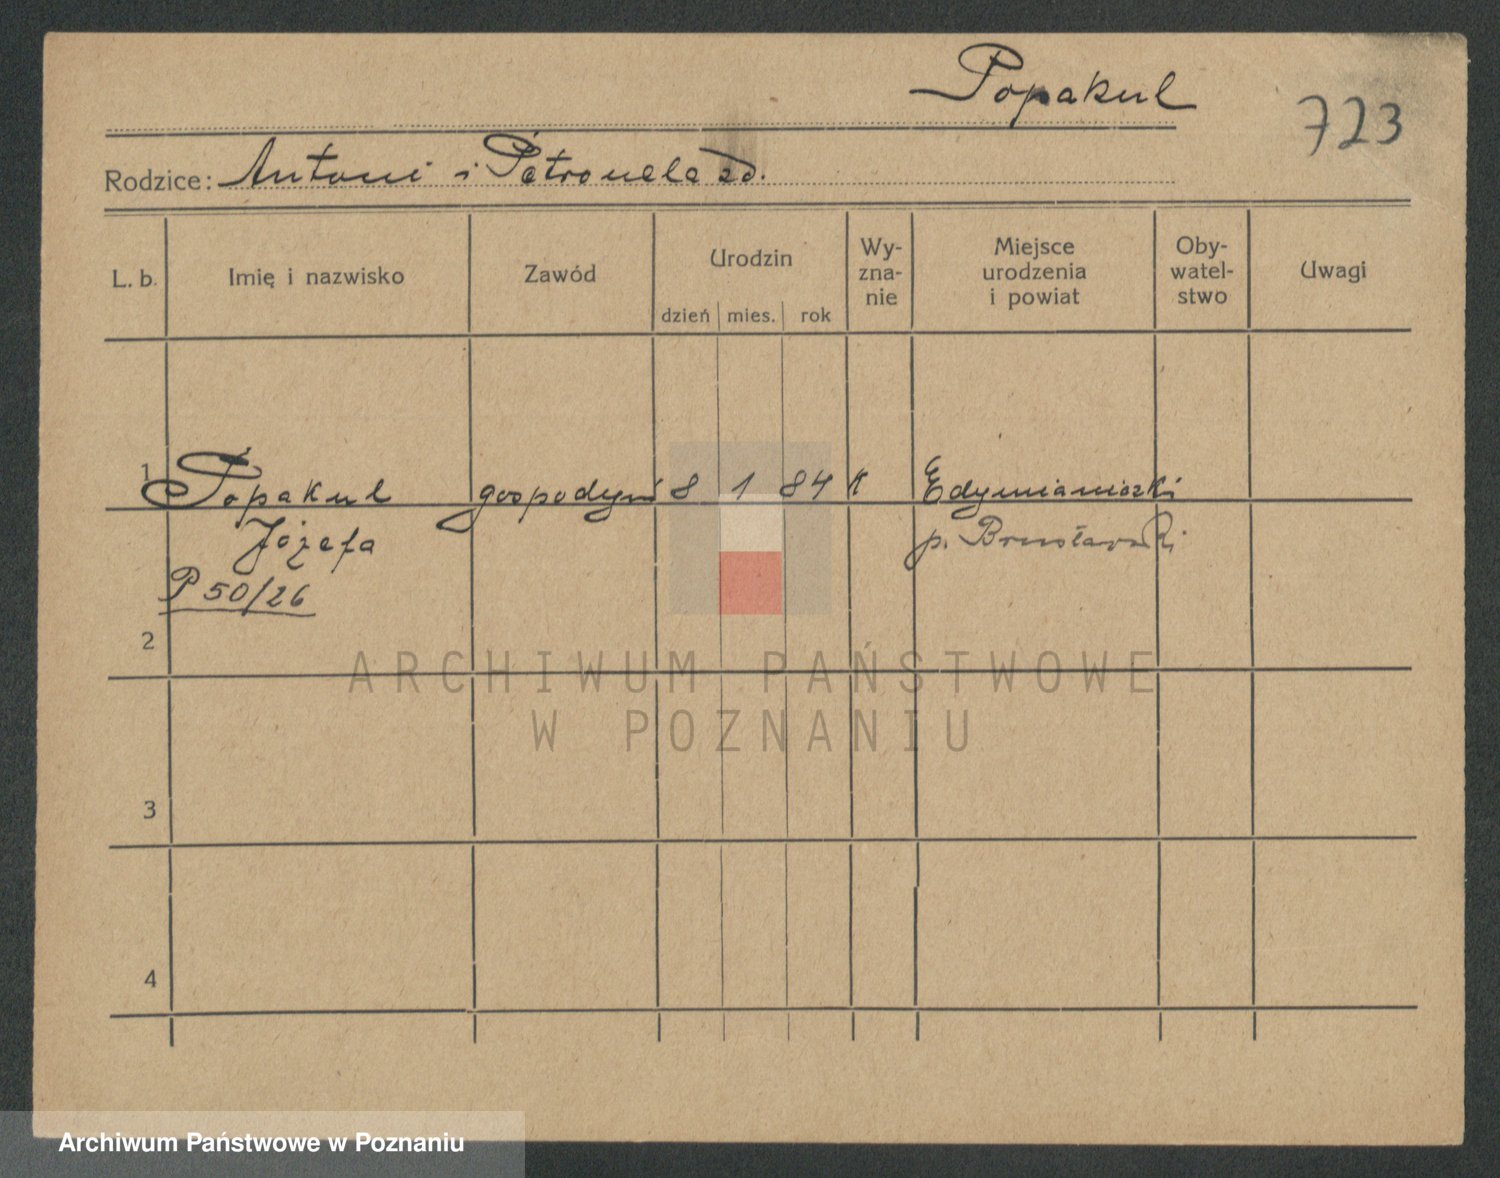 Popakul
723
Rodzice: Antoni i Petronela zd.
L. b. Imię i nazwisko Zawód Urodzin dzień mies. rok Wy-zna-nie Miejsce urodzenia i powiat Oby-watel-stwo Uwagi
1 Popakul gospodyni 8 1 84 K
Józefa p.
P 50/26
2
ARCHIWUM PAŃSTWOWE
W POZNANIU
3
4
Archiwum Państwowe w Poznaniu